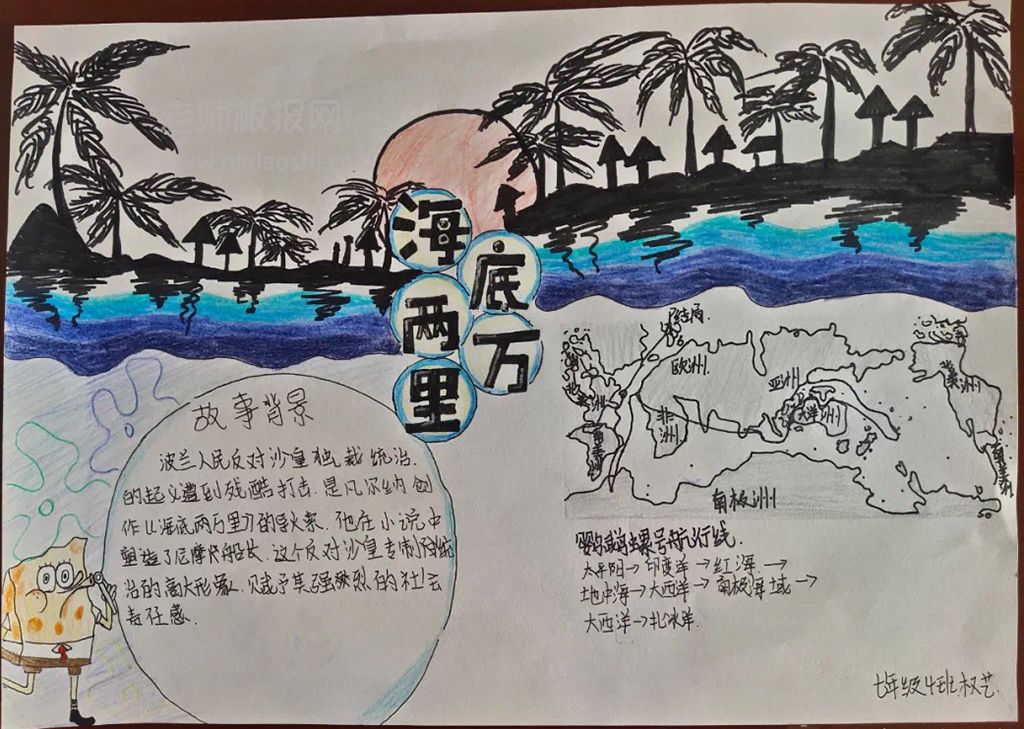 老师板报网
海底两万里
结局
欧洲
亚洲
非洲
大洋洲
北美洲
南美洲
南极洲
故事背景
波兰人民反对沙皇独裁统治
的起义遭到残酷打击.是凡尔纳创
作《海底两万里》的导火索.他在小说中
塑造了尼摩船长.这个反对沙皇专制统
治的高大形象.赋予其强烈的社会
责任感.
鹦鹉螺号航行线
太平阳→印度洋→红海→
地中海→大西洋→南极海域→
大西洋→北冰洋.
七年级4班权艺